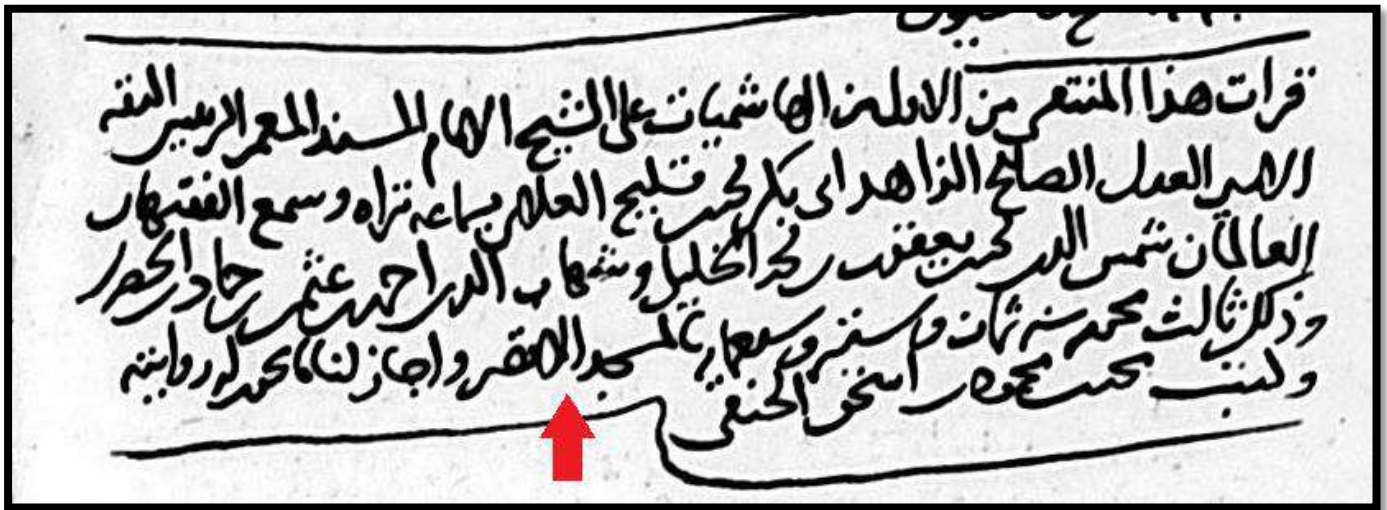 قرات هذا المنتقى من الاول من الهاشميات على الشيخ الامام المسند المعمر الرييس الثقه
الامير العدل الصالح الزاهد ابى بكر محمد قليج العلاى بسماعه تراه وسمع الفقيهان
العالمان شمس الدين محمد يعقوب بن محمد الخليل وشهاب الدين احمد بن عثمن بن حماد
وذلك ثالث محرم سنه ثمان وستين وسبعمايه بالمسجد الاقصى واجاز لنا ما يجوز له روايته
وكتب محمد بن محمود بن اسحق الحنفى